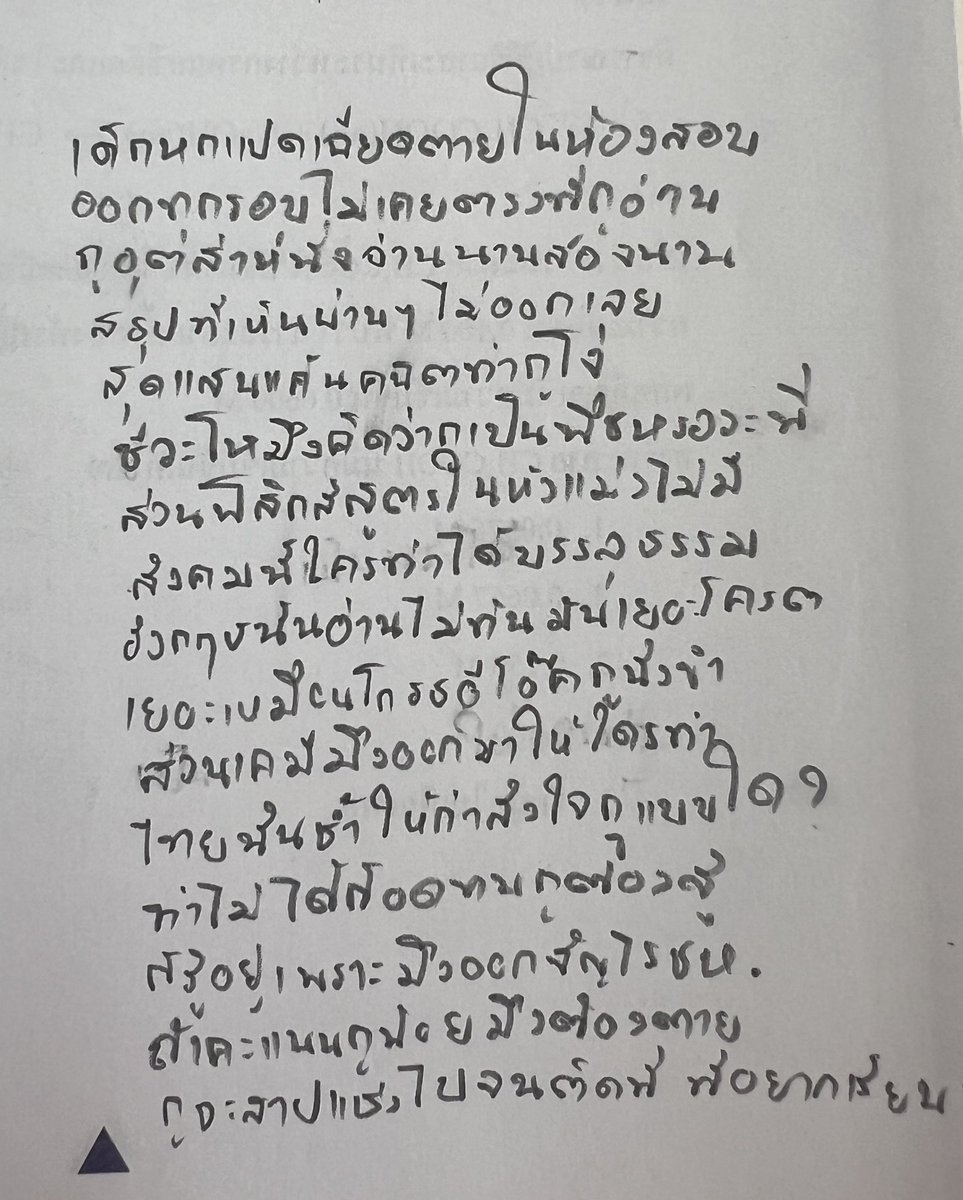 เด็กหกแปดเฉียดตายในห้องสอบ
ออกทุกรอบไม่เคยตรงที่กูอ่าน
กูอุตส่าห์นั่งอ่านนานสองนาน
สรุปที่เห็นผ่านๆ ไม่ออกเลย
สุดแสนแค้นคณิตทำกูโง่
ชีวะโหมึงคิดว่ากูเป็นพืชหรอวะพี่
ส่วนฟิสิกส์สูตรในหัวแม่งไม่มี
สังคมนี้ใครทำได้บรรลุธรรม
อังกฤษนั้นอ่านไม่ทันมันเยอะโครต
เยอะเหมือนโกรธอีโอ๊คกูนั่งขำ
ส่วนเคมีมึงออกมาให้ใครทำ
ไทยนั้นซ้ำให้กำลังใจกูแบบใด?
ทำไม่ได้ก็อดทนกูต้องสู้
สู้อยู่เพราะมึงออกสัญไรชห.
ถ้าคะแนนกูน้อยมึงต้องตาย
กูจะสาปแช่งไปจนติดที่ ที่อยากเรียน